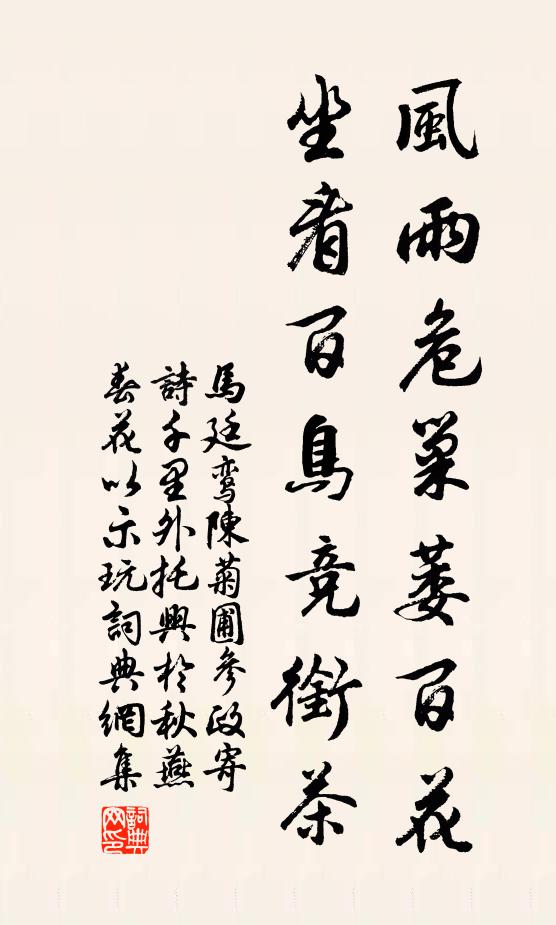 風雨危巢萎百花
坐看百鳥競銜茶
馬廷鸞陳菊圃參政寄
詩千里外托興於秋燕
春花以示玩詞典網集
詞典網印